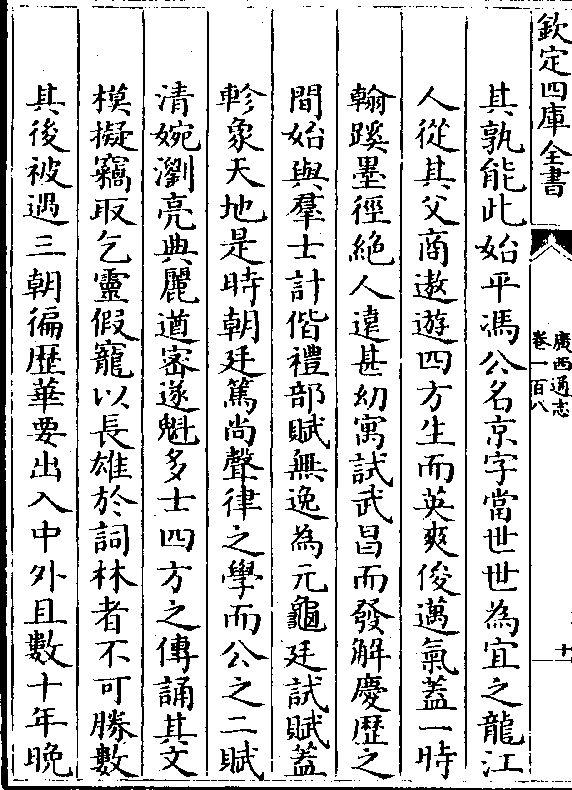 欽定四庫全書
廣西通志
卷一百八
十
其孰能此始平馮公名京字當世世為宜之龍江
人從其父商遨遊四方生而英爽俊邁氣蓋一時
翰蹊墨徑絶人逺甚幼寓試武昌而發解慶歴之
間始與羣士計偕禮部賦無逸為元龜廷試賦蓋
軫象天地是時朝廷篤尚聲律之學而公之二賦
清婉瀏亮典麗遒密遂魁多士四方之傳誦其文
模擬竊取乞靈假寵以長雄於詞林者不可勝數
其後被遇三朝徧歴華要出入中外且數十年晩